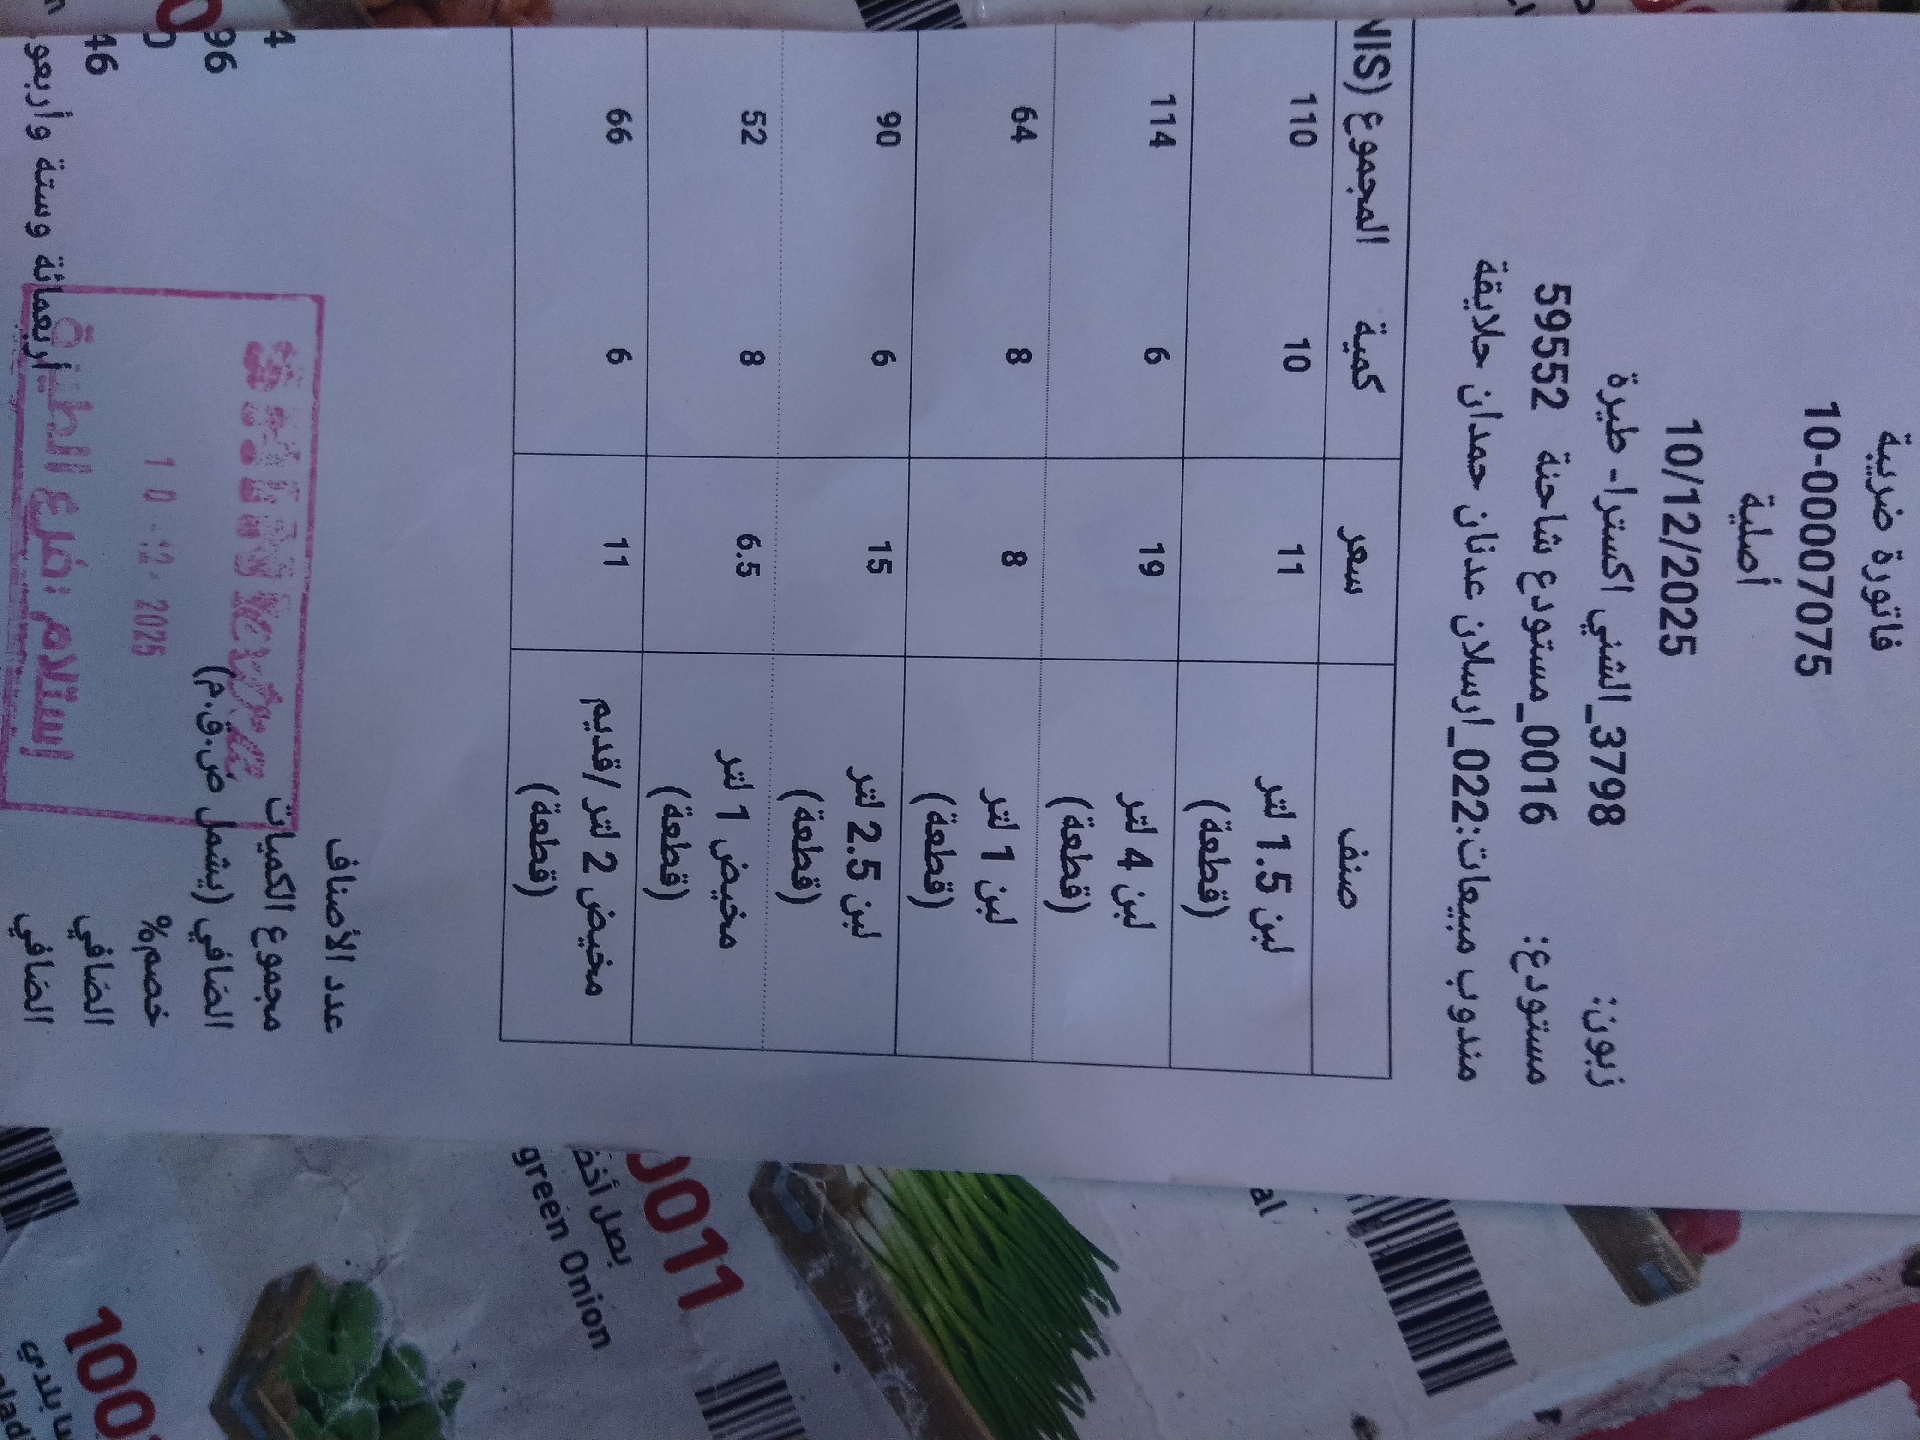 فاتورة ضريبة
10-00007075
أصلية
10/12/2025
زبون: 3798_الشني اكسترا- طيرة
مستودع: 0016_مستودع شاحنة 59552
مندوب مبيعات:022_ارسلان عدنان حمدان حلايقة
صنف سعر كمية المجموع (NIS
لبن 1.5 لتر (قطعة) 11 10 110
لبن 4 لتر (قطعة) 19 6 114
لبن 1 لتر (قطعة) 8 8 64
لبن 2.5 لتر (قطعة) 15 6 90
مخيض 1 لتر (قطعة) 6.5 8 52
مخيض 2 لتر /قديم (قطعة) 11 6 66
عدد الأصناف
مجموع الكميات 4
الصافي (يشمل ض.ق.م) 96
خصم%
الصافي 46
الصافي أربعمائة وستة وأربعو
10 12. 2025
إستلام :فرع الطيرة
0011
بصل أخض
green Onion
al
100
بلدي